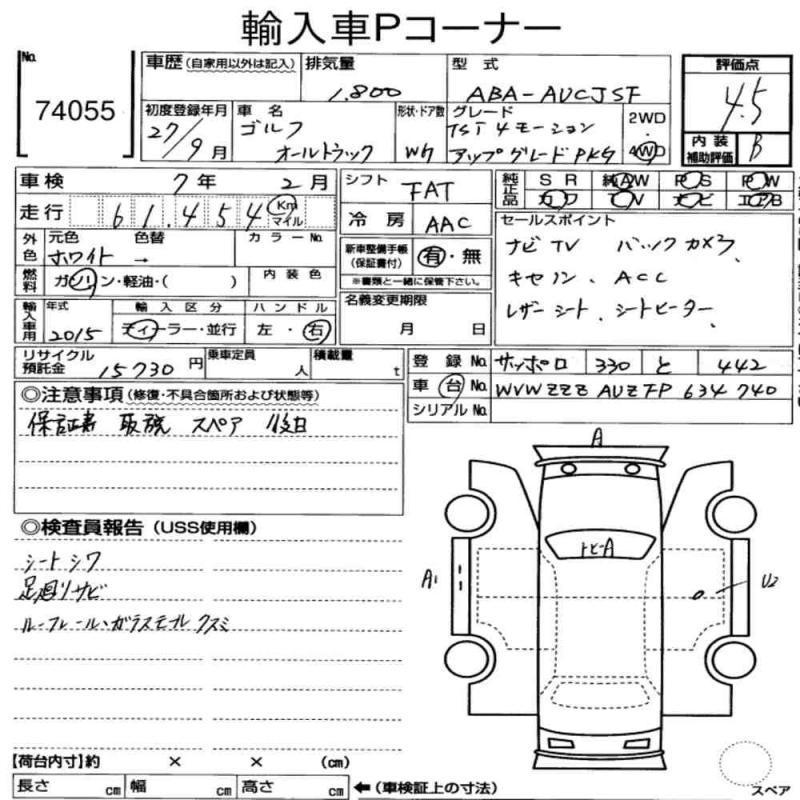 輸入車Pコーナー
No.
74055
車歴(自家用以外は記入) 排気量 型式 評価点
1.800 ABA-AUCJSF 4.5
初度登録年月 車名 形状・ドア数 グレード 2WD
27/9月 ゴルフ オールトラック Wg TSI 4モーション アップグレードPKG 4WD
内装補助評価 B
車検 7年 2月 シフト FAT 純正品 SR 純AW PS PW
走行 61,454 Km マイル 冷房 AAC カワ TV ナビ エアB
外色 元色 色替 カラーNo. 新車整備手帳(保証書付) 有・無 セールスポイント
ホワイト → ※書類と一緒に保管下さい。 ナビ TV バックカメラ
燃料 ガソリン・軽油・( ) 内装色 キセノン、ACC
輸入車用 年式 輸入区分 ハンドル 名義変更期限 レザーシート、シートヒーター
2015 ディーラー・並行 左・右 月 日
リサイクル預託金 15730円 乗車定員 人 積載量 t 登録No. サッポロ 330 と 442
車台No. WVWZZZAUZFP634740
シリアルNo.
◎注意事項(修復・不具合箇所および状態等)
保証書 取説 スペア 後日
A
◎検査員報告(USS使用欄)
トビーA
シートシワ
足廻りサビ
A1 U2
ルーフレール・ガラスモールクスミ
【荷台内寸】約 × × (cm)
長さ cm 幅 cm 高さ cm ←(車検証上の寸法) スペア